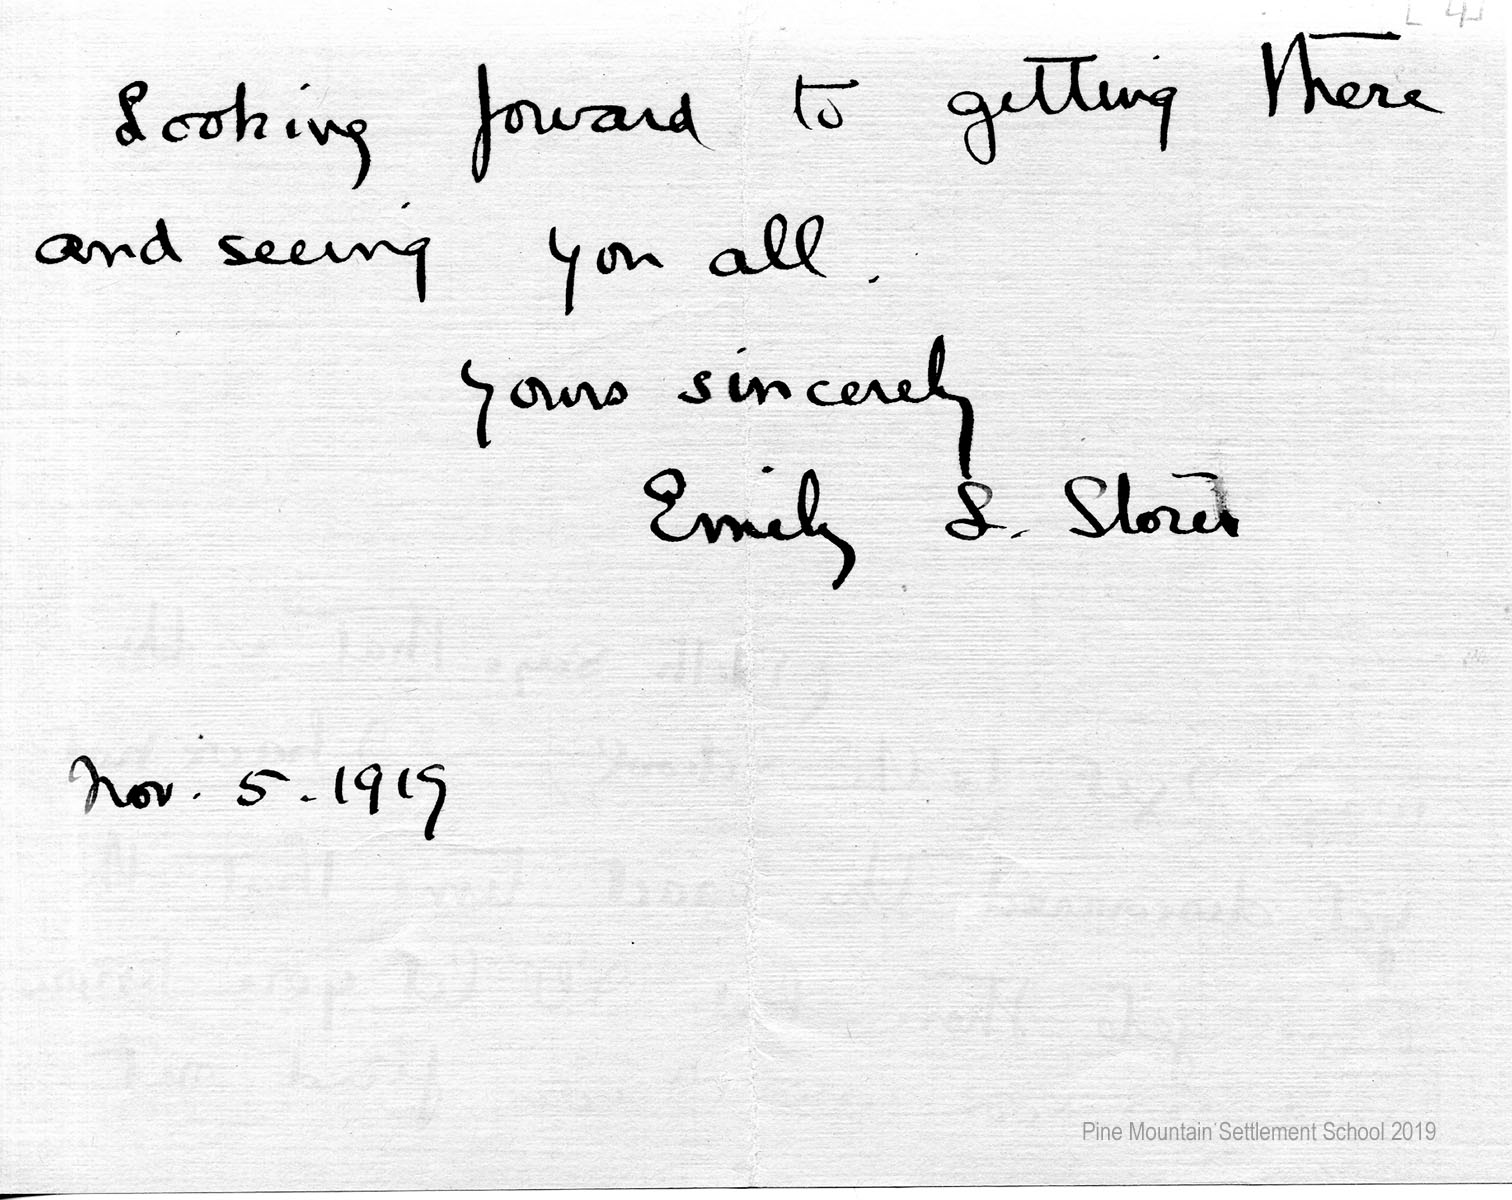 Looking forward to getting there
and seeing you all.
Yours sincerely
Emily L. Storer
Nov. 5. 1919
Pine Mountain Settlement School 2019